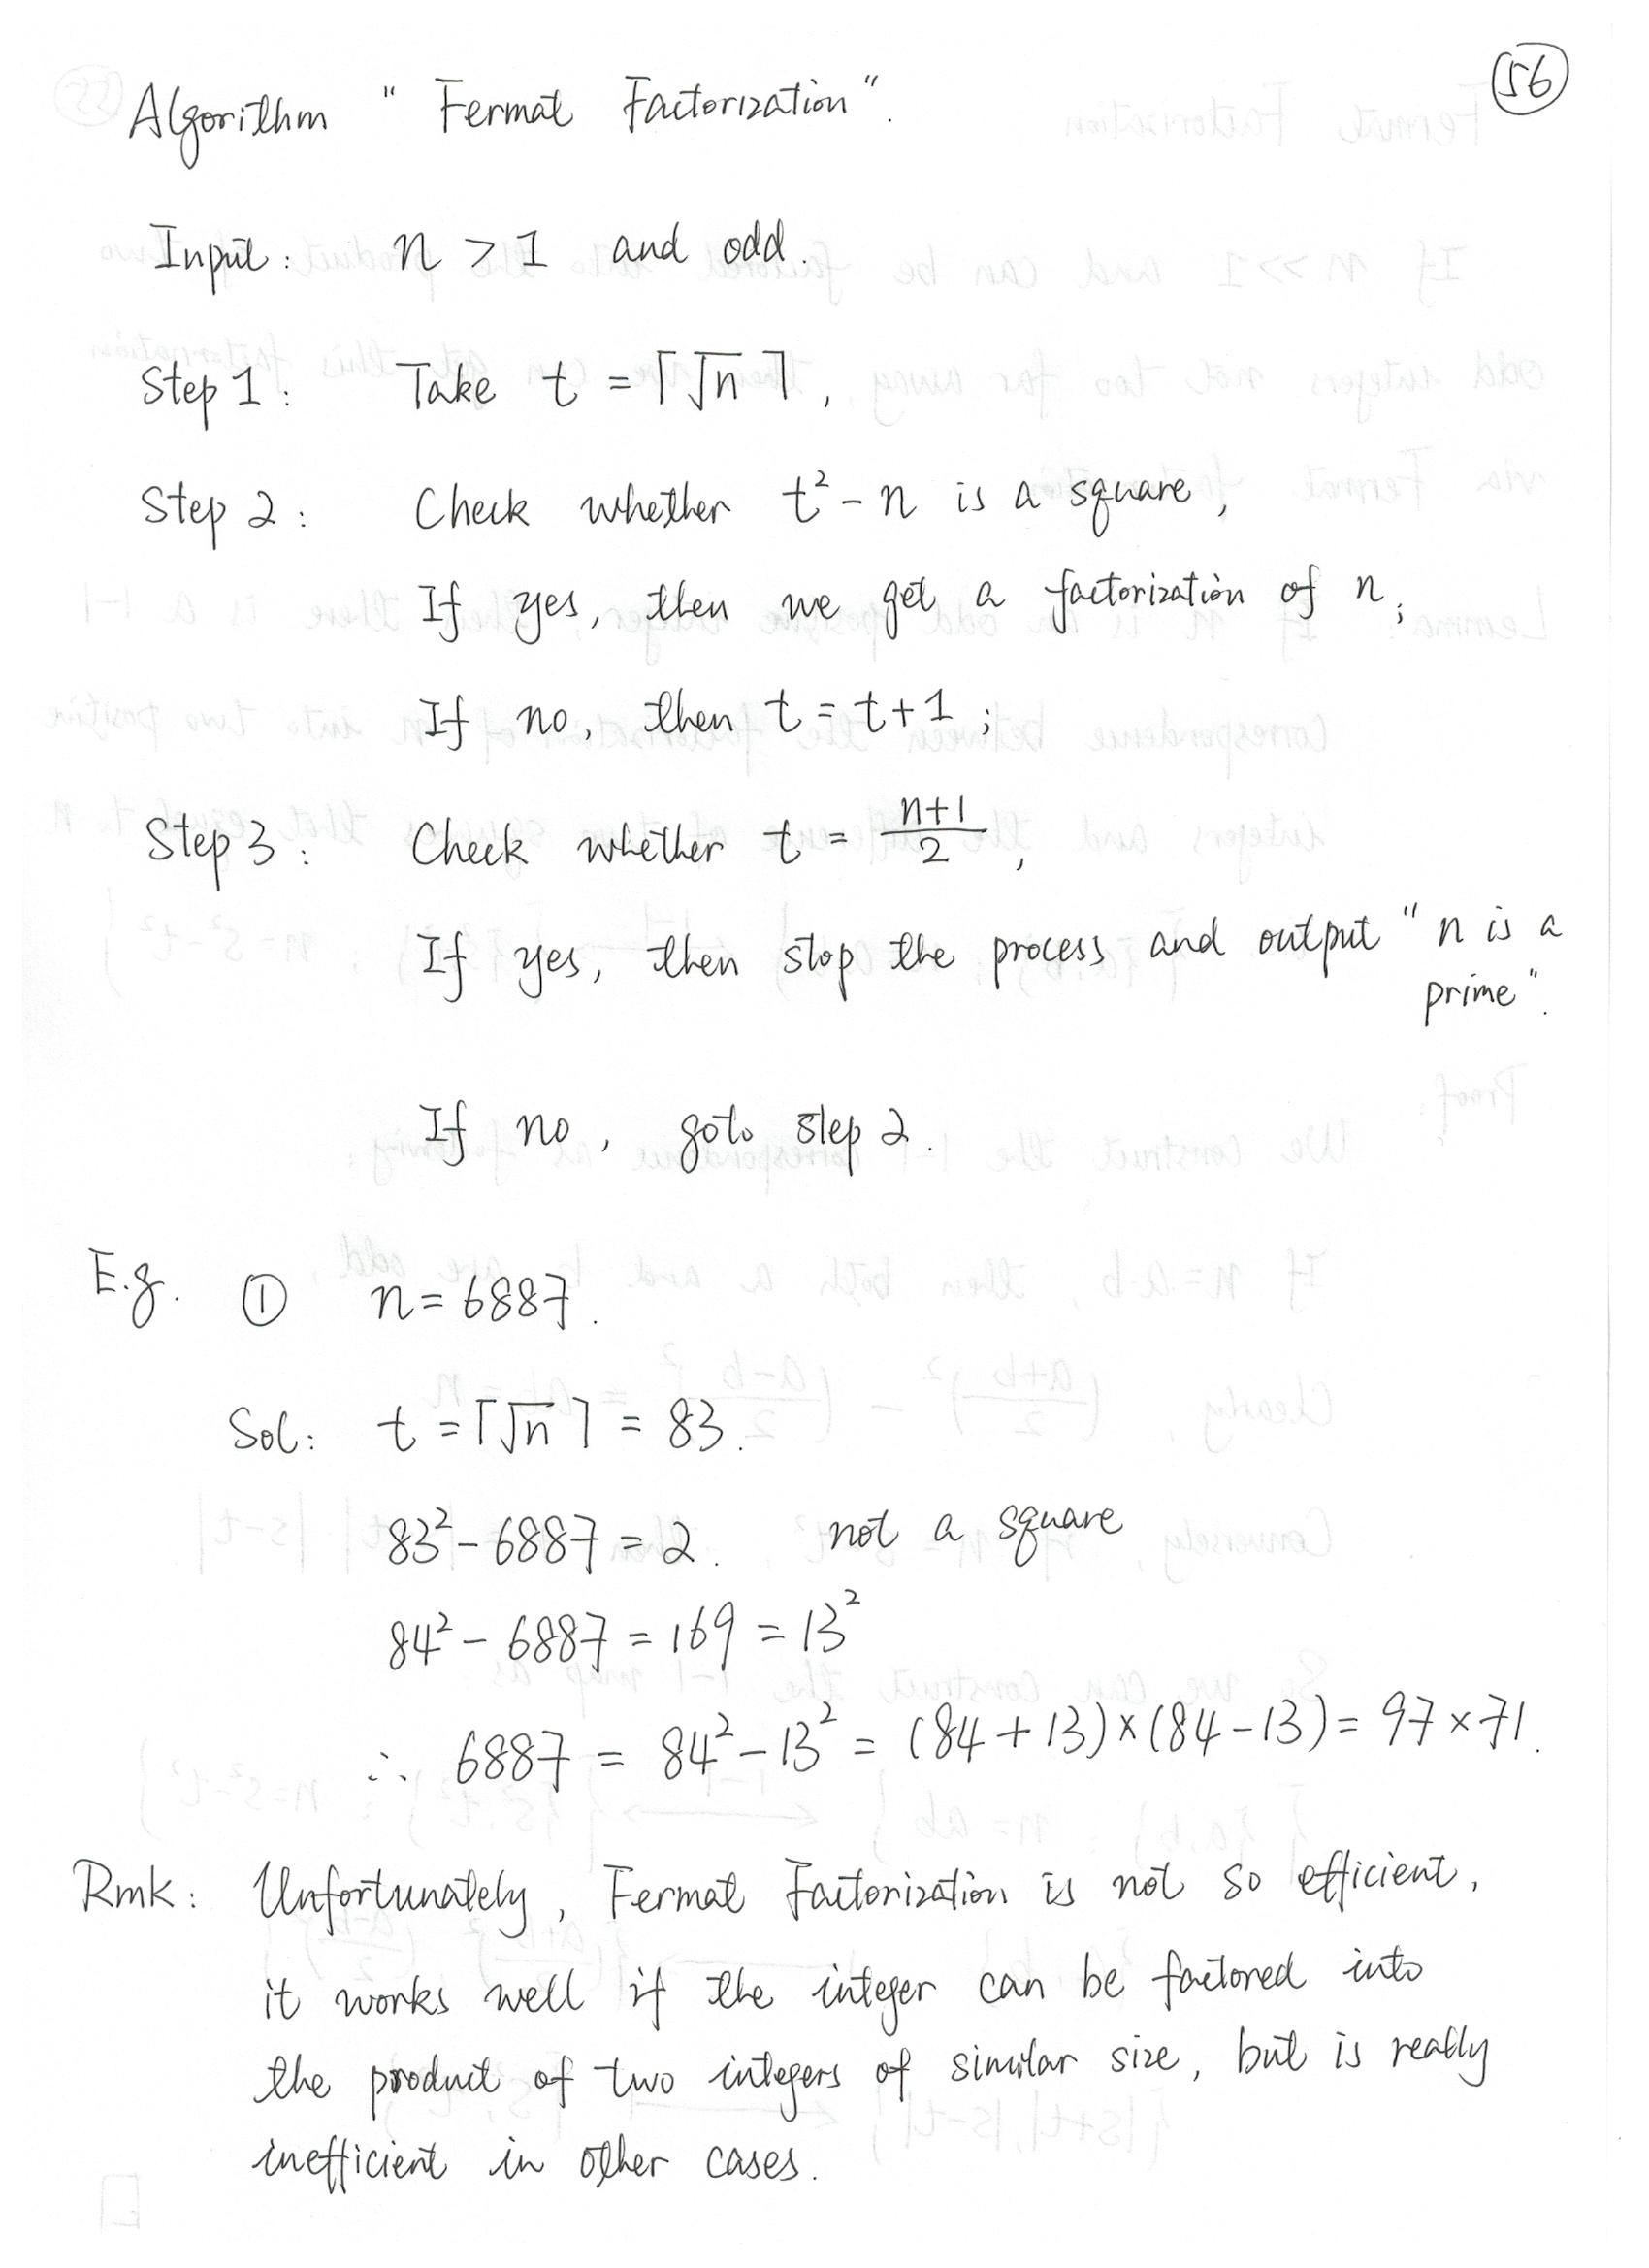 56
Algorithm "Fermat Factorization".
Input: n > 1 and odd.
Step 1: Take t = ⌈√n⌉,
Step 2: Check whether t² - n is a square,
If yes, then we get a factorization of n;
If no, then t = t+1;
Step 3: Check whether t = (n+1)/2,
If yes, then stop the process and output "n is a
prime".
If no, goto step 2.
E.g. ① n = 6887.
Sol: t = ⌈√n⌉ = 83.
83² - 6887 = 2. not a square
84² - 6887 = 169 = 13²
∴ 6887 = 84² - 13² = (84 + 13) × (84 - 13) = 97 × 71.
Rmk: Unfortunately, Fermat Factorization is not so efficient,
it works well if the integer can be factored into
the product of two integers of similar size, but is really
inefficient in other cases.